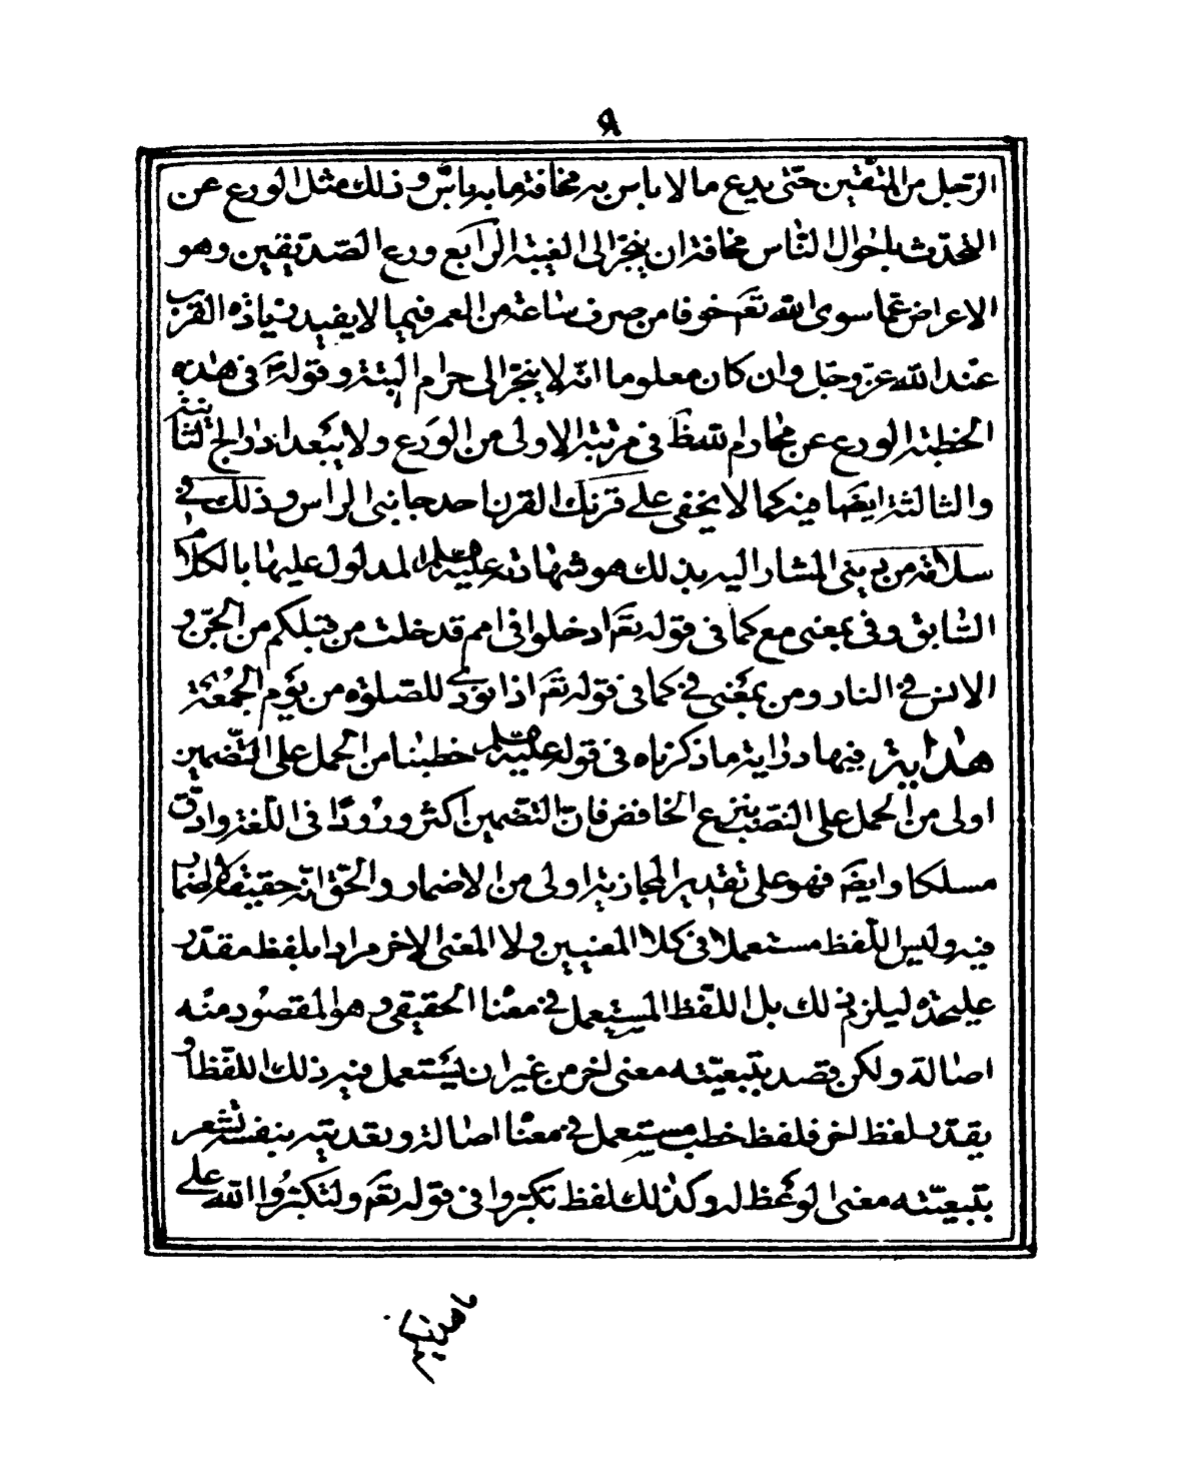 ٩
الرّجل من المتّقين حتّى يدع ما لا باس به مخافة ما به باسٌ وذلك مثل الورع عن
التحدّث باحوال النّاس مخافة ان ينجرّ الى الغيبة الرّابع ورع الصّدّيقين وهو
الاعراض عمّا سوى الله تعَ خوفا من صرف ساعة من العمر فيما لا يفيد زيادة القرب
عند الله عزّ وجلّ وان كان معلوما انّه لا ينجرّ الى حرام البتة وقوله في هذه
الخطبة الورع عن محارم الله في مرتبة الاولى من الوَرَع ولا يبعد ادراج الثانية
والثالثة ايضا فيه كما لا يخفى على قرنك القرن احد جانبى الراس وذلك في
سلامة من دينى المشار اليه بذلك هو شهادته عليه السلم المدلول عليها بالكلام
السّابق وفى بمعنى مع كما فى قوله تعَ ادخلوا فى امم قد خلت من قبلكم من الجنّ و
الانس في النار ومن بمعنى في كما فى قوله تعَ اذا نودى للصّلوة من يوم الجمُعَة
هداية فيها دراية ما ذكرناه فى قوله عليه السلم خطبنا من الحمل على التّضمين
اولى من الحمل على النصب بنزع الخافض فانّ التّضمين اكثر ورُودًا فى اللّغة وادقّ
مسلكا وايضَ فهو على تقدير المجازية اولى من الاضمار والحقّ انّه حقيقة لا اضمار
فيه وليس اللّفظ مستعملا فى كلا المعنيين ولا المعنى الاخر مرادا بلفظ مقدّر
عليحدة ليلزم ذلك بل اللّفظ المستعمل في معناه الحقيقى وهو المقصُود منه
اصالة ولكن قصد بتبعيّته معنى اخر من غير ان يُستعمل فيه ذلك اللّفظ او
يقدّر لفظ اخر فلفظ خطب مستعمل في معناه اصالة وتعديته بنفسه تشعر
بتبعيّته معنى الوعظ له وكذلك لفظ تكبّروا فى قوله تعَ ولتكبّرُوا الله على
ما هديكم